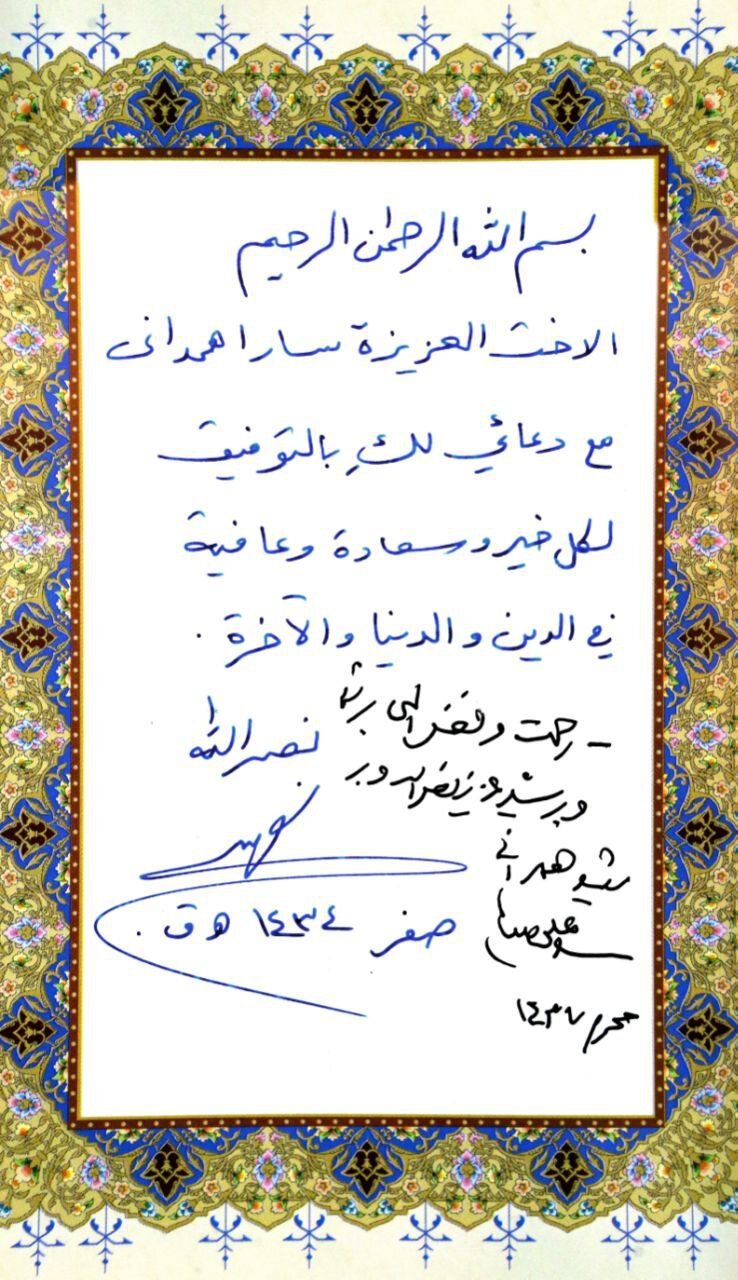 بسم الله الرحمن الرحيم
الاخت العزيزة سارا همدانی
مع دعائي لكِ بالتوفيق
لكل خير وسعادة وعافية
في الدين والدنيا والآخرة .
نصر الله
صفر ١٤٣٤ هـ ق .
- رحمت و فضل الهی بر شما
و بر
همدانی
محرم ١٤٣٧